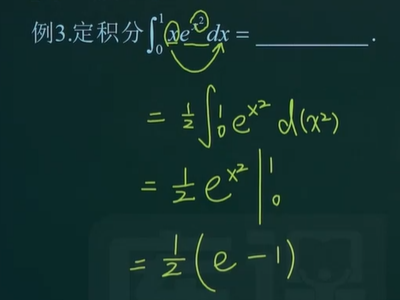 例3.定积分∫₀¹ xe^{x²}dx = ________.
= ½ ∫₀¹ e^{x²} d(x²)
= ½ e^{x²} |₀¹
= ½ (e − 1)